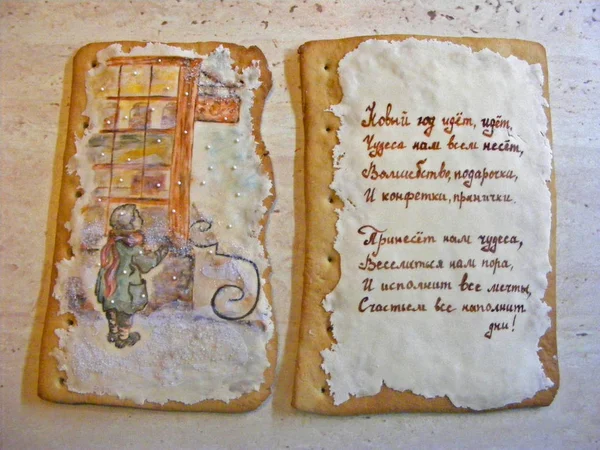 Новый год идёт, идёт,
Чудеса нам всем несёт,
Волшебство, подарочки,
И конфетки, прянички.
Принесёт нам чудеса,
Веселиться нам пора,
И исполнит все мечты,
Счастьем все наполнит
дни!